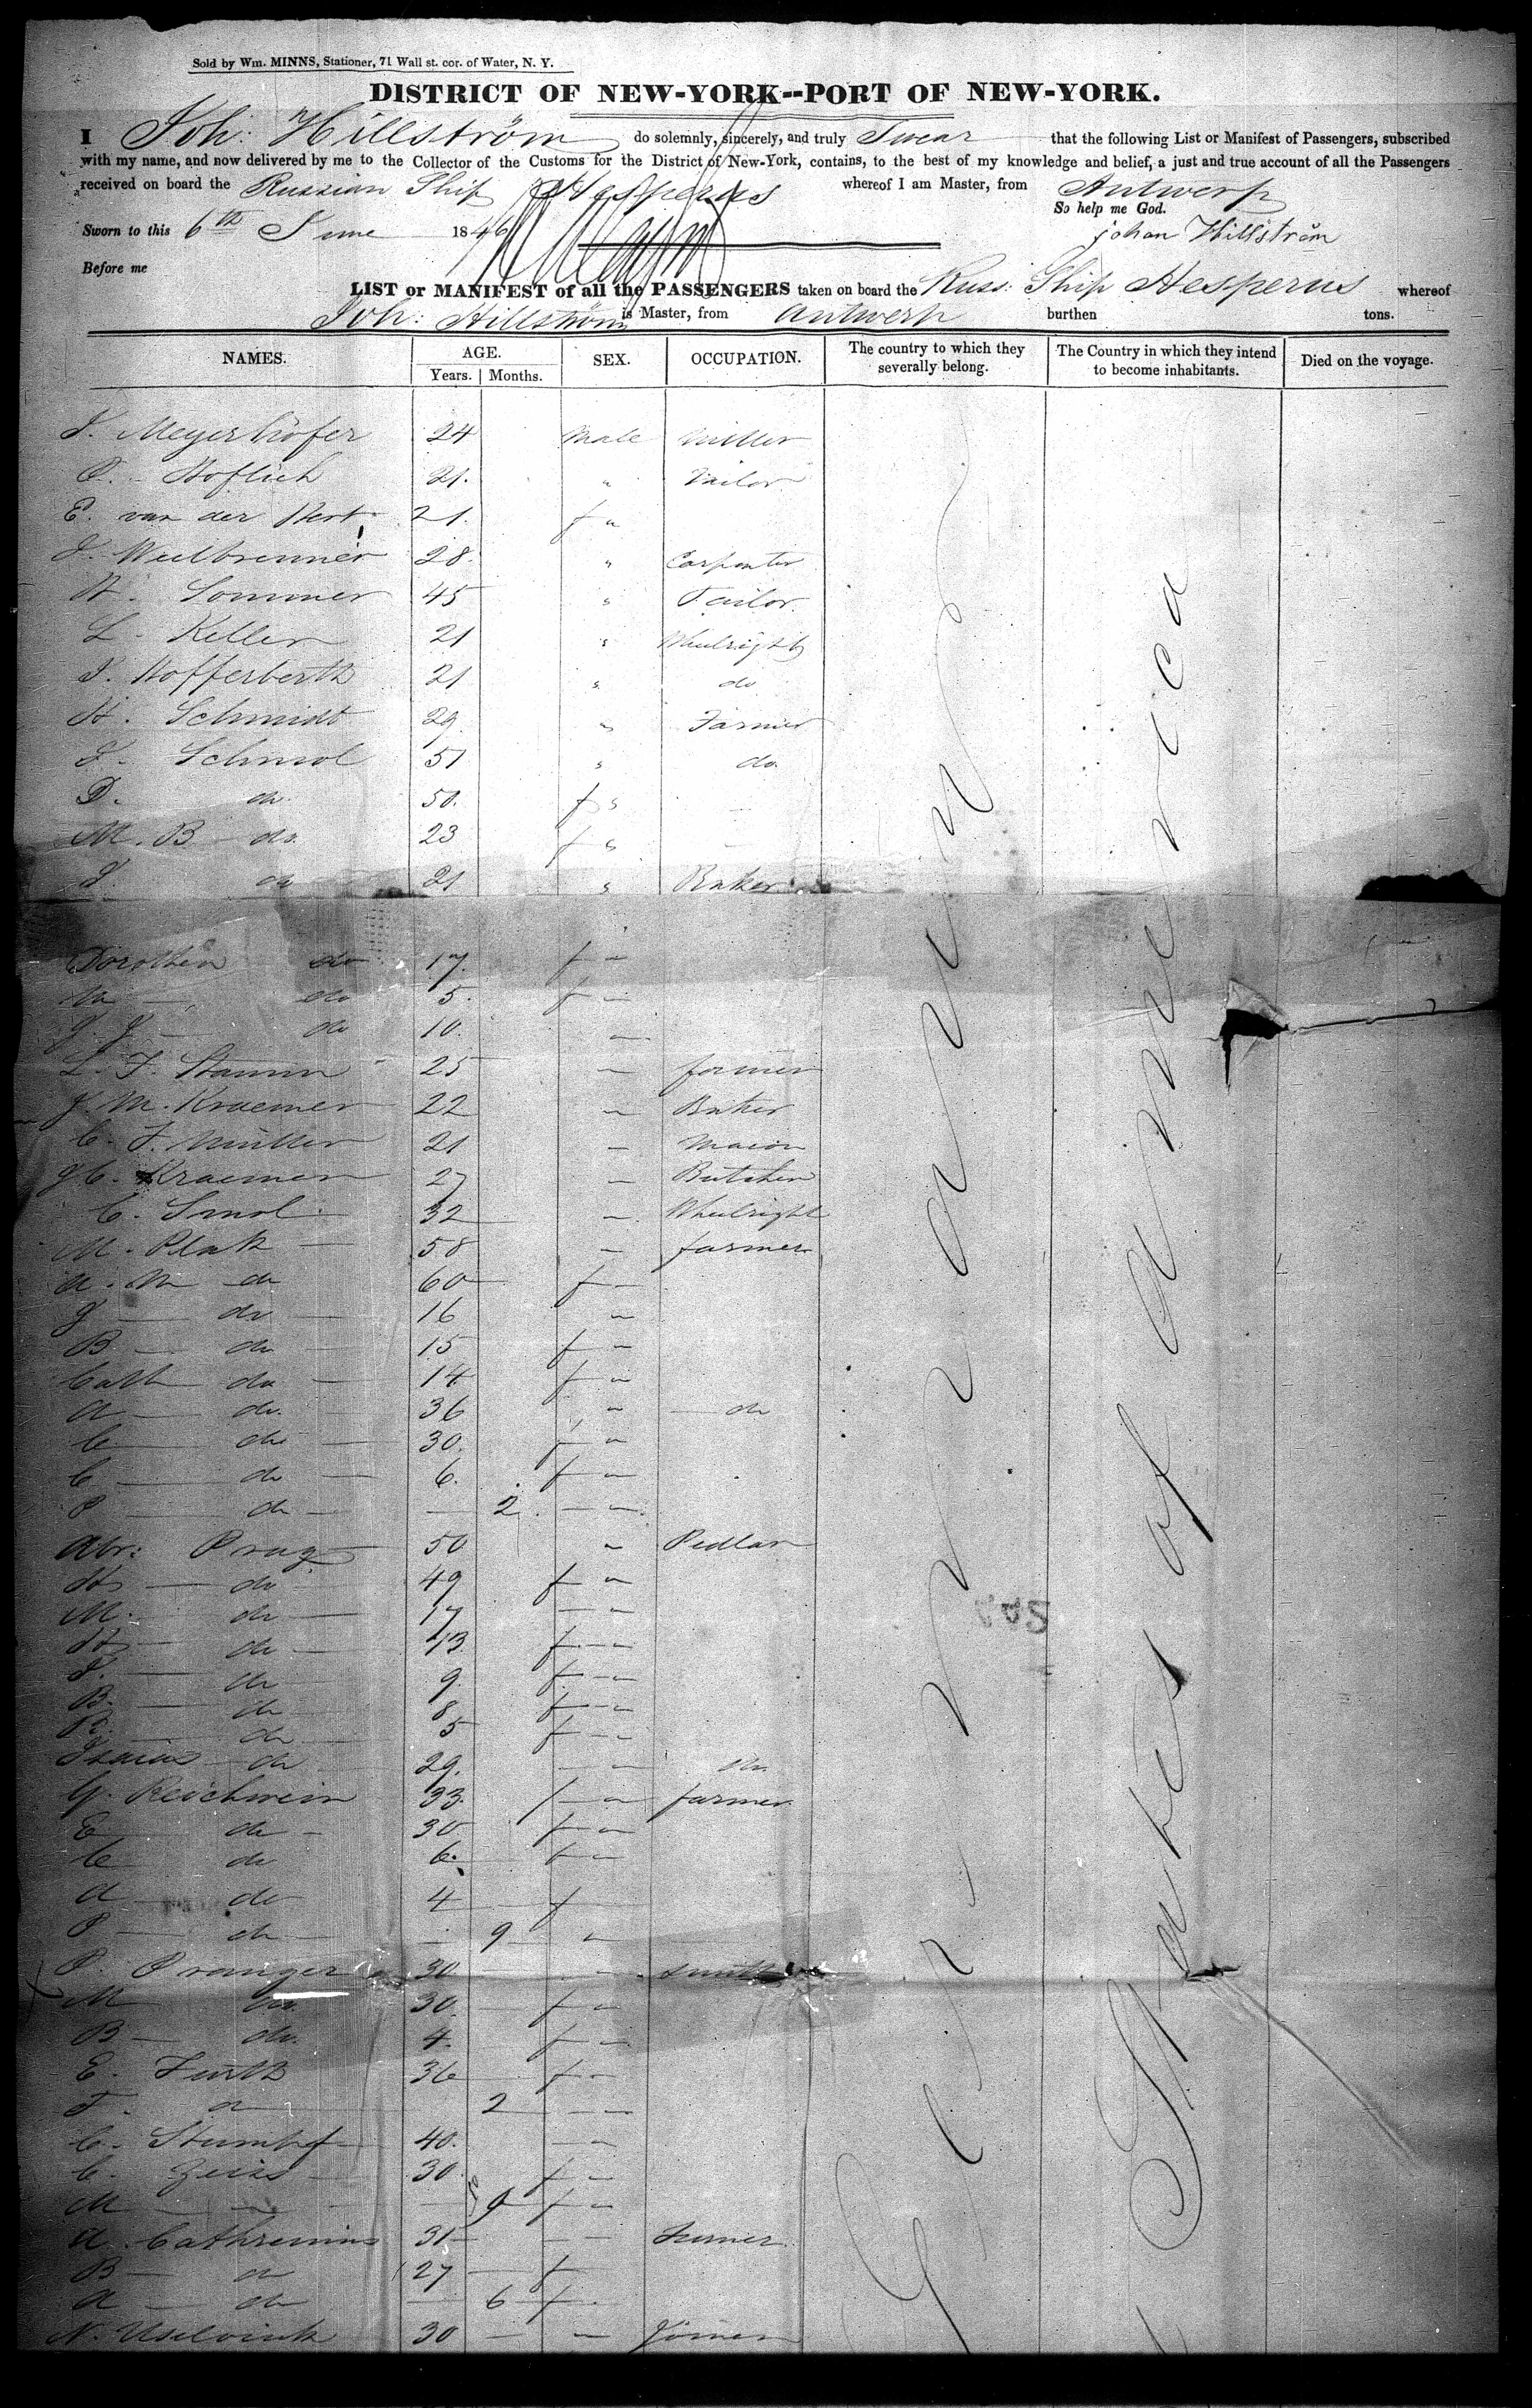 Sold by Wm. MINNS, Stationer, 71 Wall st. cor. of Water, N. Y.
DISTRICT OF NEW-YORK--PORT OF NEW-YORK.
I Joh: Hillström do solemnly, sincerely, and truly Swear that the following List or Manifest of Passengers, subscribed
with my name, and now delivered by me to the Collector of the Customs for the District of New-York, contains, to the best of my knowledge and belief, a just and true account of all the Passengers
received on board the Russian Ship Hesperus whereof I am Master, from Antwerp
So help me God.
Sworn to this 6th June 1846 Johan Hillström
Before me
LIST or MANIFEST of all the PASSENGERS taken on board the Russ: Ship Hesperus whereof
Joh: Hillström is Master, from Antwerp burthen tons.
NAMES. AGE. Years. Months. SEX. OCCUPATION. The country to which they severally belong. The Country in which they intend to become inhabitants. Died on the voyage.
J. Meyerhöfer 24 Male Miller
Hoflich 21. " Tailor
E. van der 21. f "
28. " Carpenter
Sommer 45 " Tailor.
L. Keller 21 " Wheelright
J. Hofferberth 21 " do
H. Schmidt 29 " Farmer
51 " do.
D. do. 50. f "
M. B do. 23 f "
do 21 " Baker
Dorothea do 17. f "
do 5. f "
do 10. "
L. F. Stamm 25 " farmer
J. M. Kraemer 22 " Baker
C. F. Müller 21 " Mason
Kraemer 27 " Butcher
C. 32 " Wheelright
M. Plak 58 " farmer
do 60 f "
do 16 "
B do 15 f "
Cath do 14 f "
a do. 36 " do
C do 30. f "
C do 6. f "
P do 2 "
Abr: Prag 50 " Pedlar
do 49 f "
M. do 17 "
do 13 f "
do 9. f "
B. do 8 f "
do 5 f "
do 29. " do
G. Reichwein 33. " farmer
E do 30 f "
C do 6.
a do 4 f
P do 9 "
P. Pranger 30 " smith
M do. 30. f "
B do. 4. f "
E. Furth 36 f "
2 "
C. Stumpf 40. "
C. Zeiss 30 f "
M 9 f "
a. Cathremins 31 "
B do 27 f
a do 6 f
N. 30 " Joiner
Germany
States of america